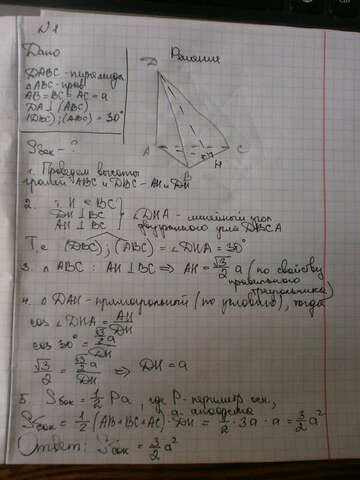 N1
Дано Решение
DABC - пирамида
△ABC - прав.
AB = BC = AC = a
DA ⊥ (ABC)
(DBC); (ABC) = 30°
Sбок - ?
D
A
B
C
H
1. Проведем высоты
граней ABC и DBC - AH и DH
2. т. H ∈ BC
DH ⊥ BC
AH ⊥ BC
∠DHA - линейный угол
двугранного угла DBCA
Т.е. (DBC); (ABC) = ∠DHA = 30°
3. △ABC : AH ⊥ BC ⟹ AH = √3/2 a (по свойству
правильного
треугольника)
4. △DAH - прямоугольный (по условию), тогда
cos ∠DHA = AH/DH
cos 30° = (√3/2 a)/DH
√3/2 = (√3/2 a)/DH ⟹ DH = a
5. Sбок = 1/2 Pa, где P - периметр осн,
a - апофема
Sбок = 1/2 (AB + BC + AC) · DH = 1/2 · 3a · a = 3/2 a²
Ответ: Sбок = 3/2 a²